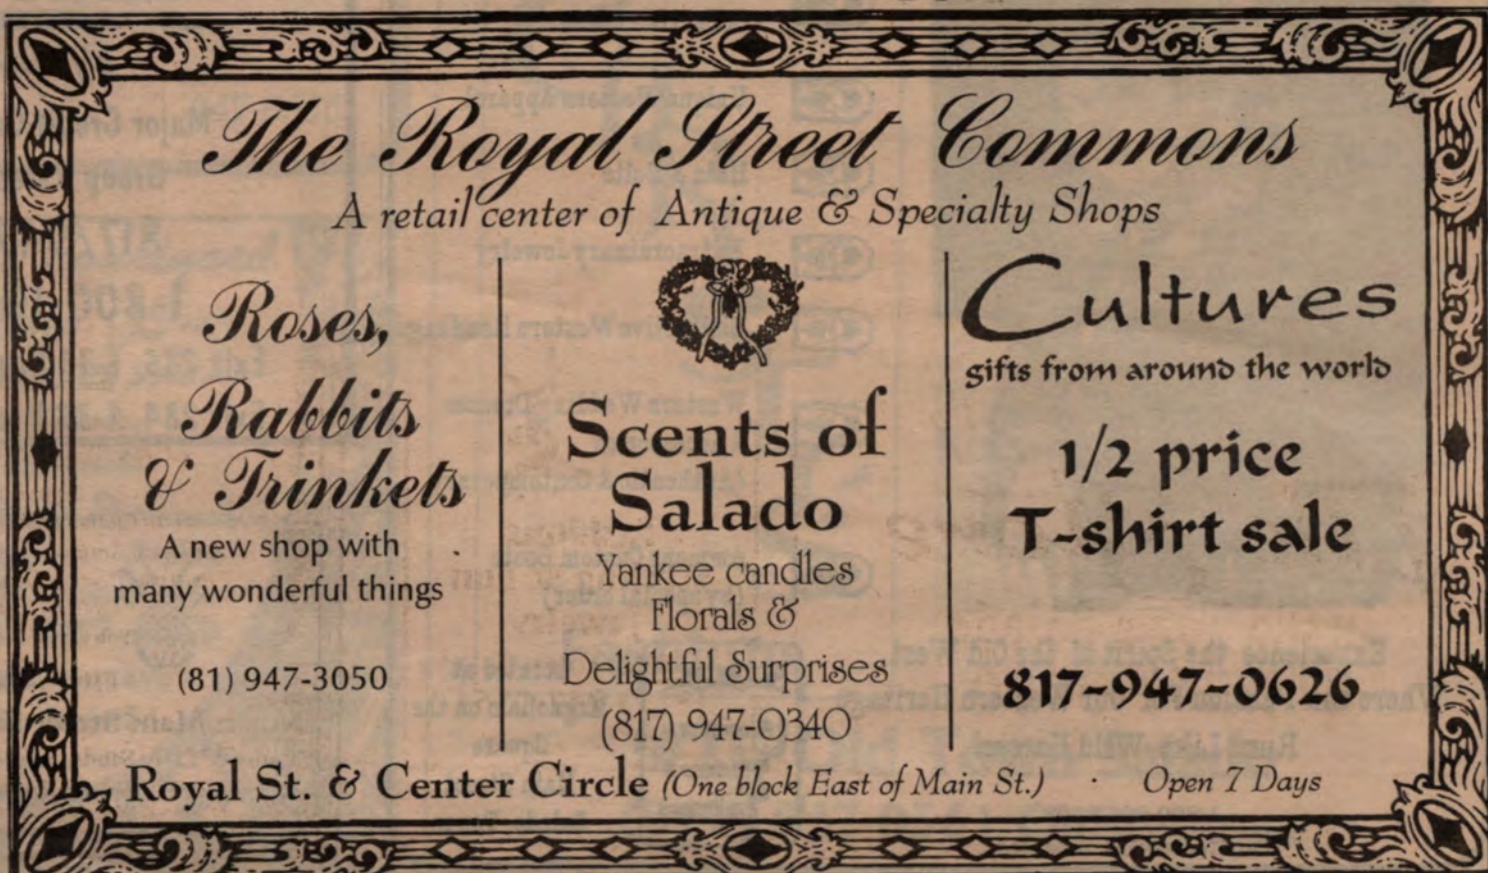 The Royal Street Commons
A retail center of Antique & Specialty Shops
Roses,
Rabbits
& Trinkets
A new shop with
many wonderful things
(81) 947-3050
Scents of
Salado
Yankee candles
Florals &
Delightful Surprises
(817) 947-0340
Cultures
gifts from around the world
1/2 price
T-shirt sale
817-947-0626
Royal St. & Center Circle (One block East of Main St.) · Open 7 Days